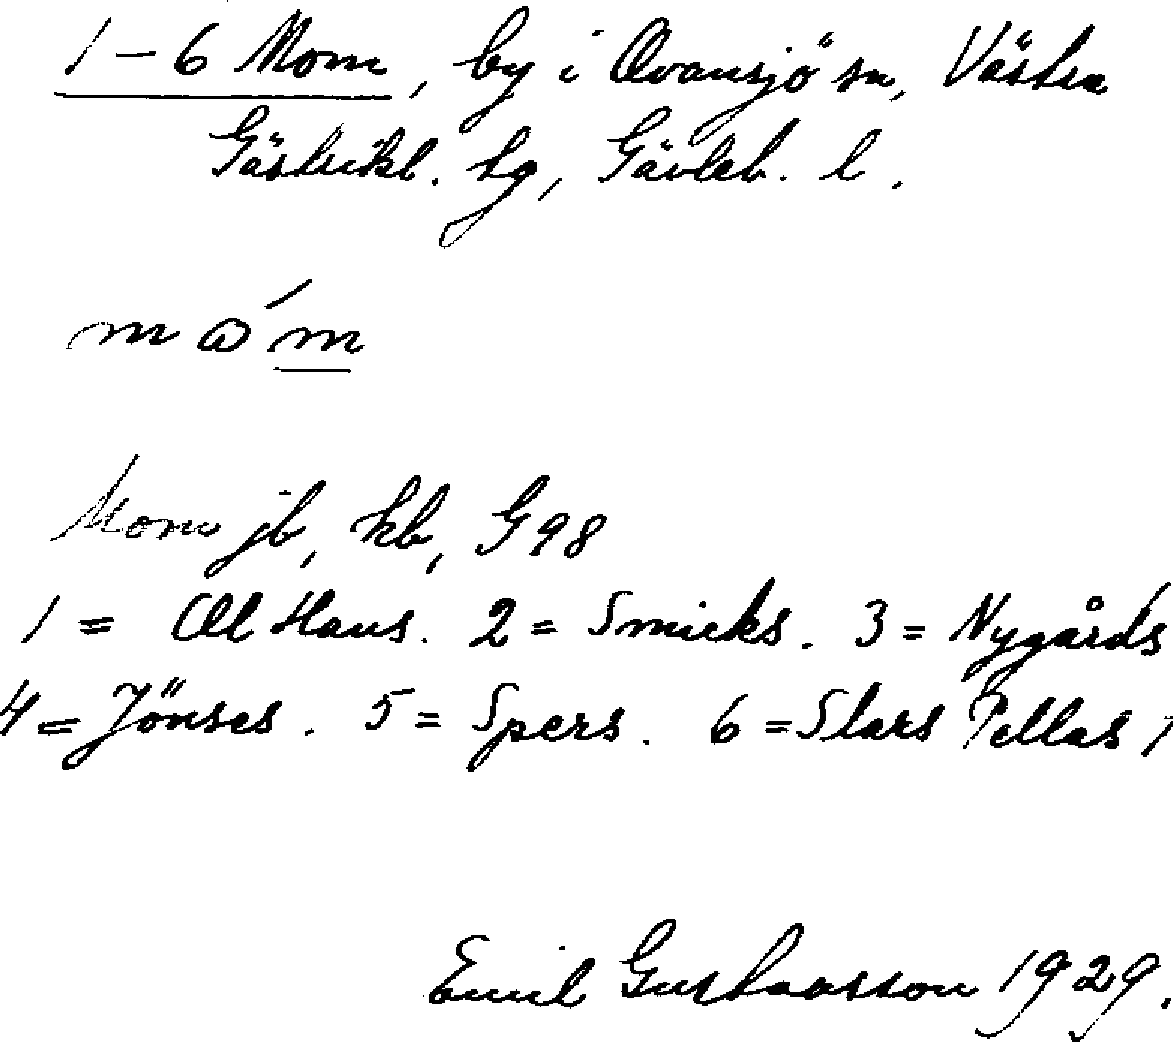 1–6 Mom, by i Ovansjö sn, Västra
Gästrikl. hg, Gävleb. l.
Mom jb, kb, G98
1 = Oll Hans. 2 = Smicks. 3 = Nygårds
4 = Jönses. 5 = Spers. 6 = Slars Pellas
Emil Gustavsson 1929.